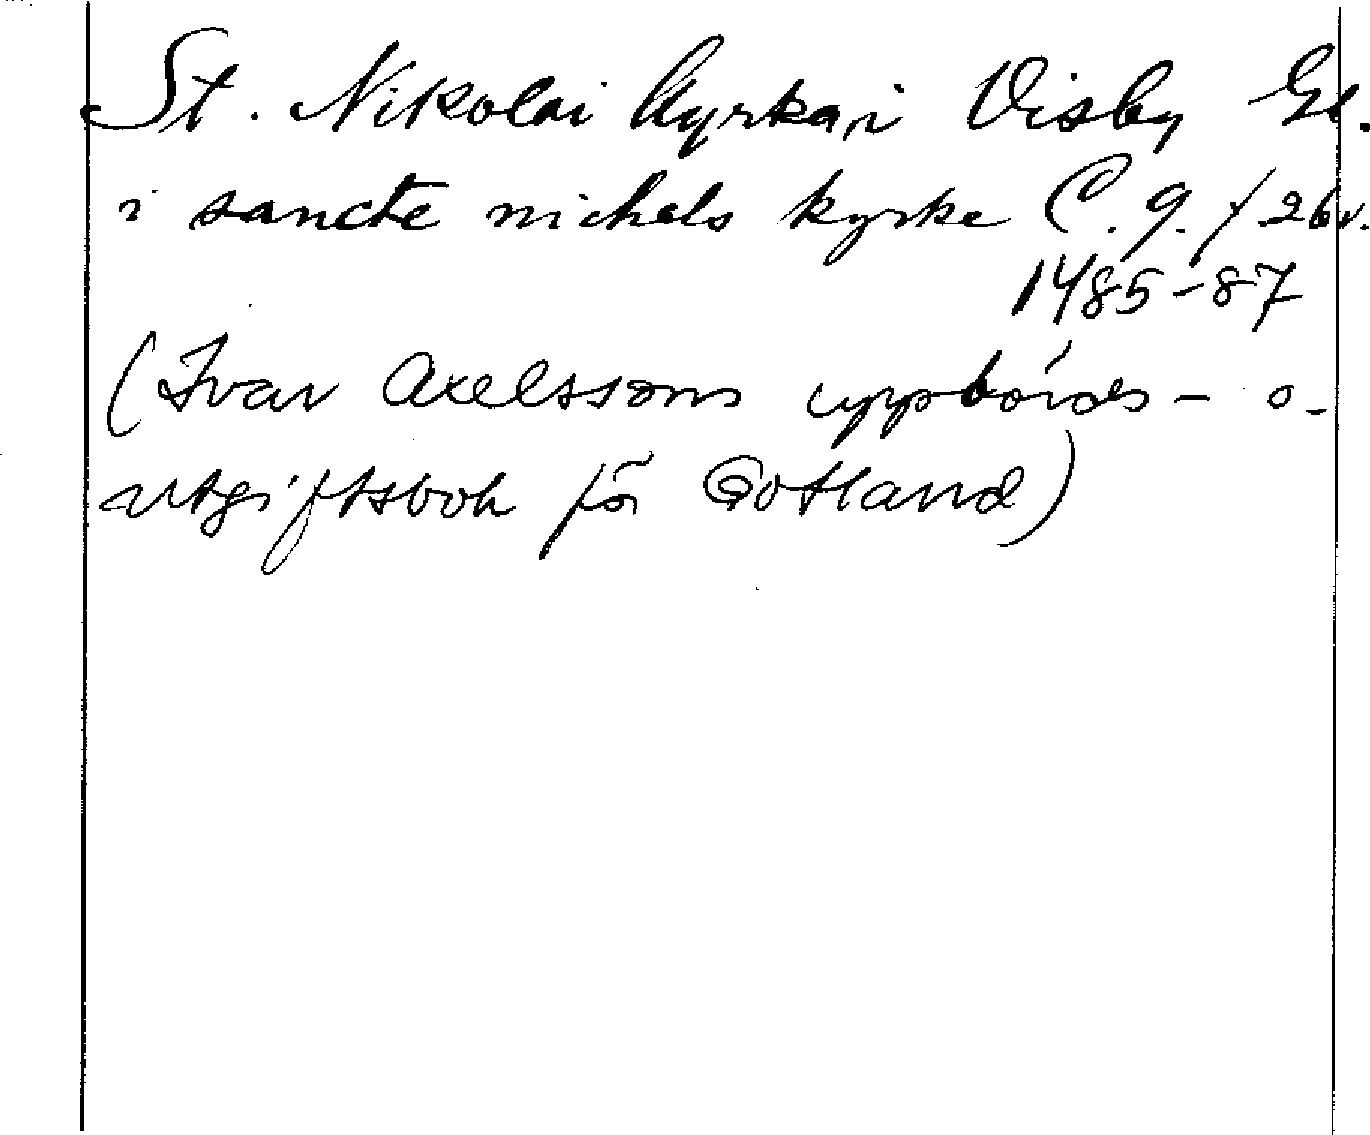 St. Nikolai kyrka, i Visby Gl.
i sancte nichels kyrke C. 9. f. 26v.
1485-87
(Ivar Axelssons uppbörds- o.
utgiftsbok för Gotland)